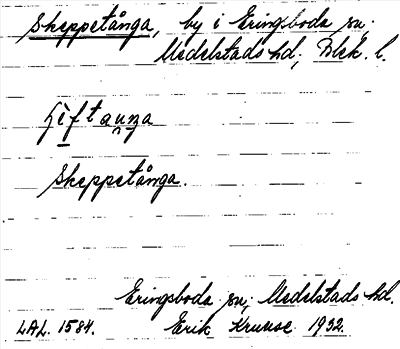 Skeppetånga, by i Eringsboda sn;
Medelstads hd, Blek. l.
Skeppetånga.
Eringsboda sn, Medelstads hd.
LAL. 1584. Erik Kruuse 1932.